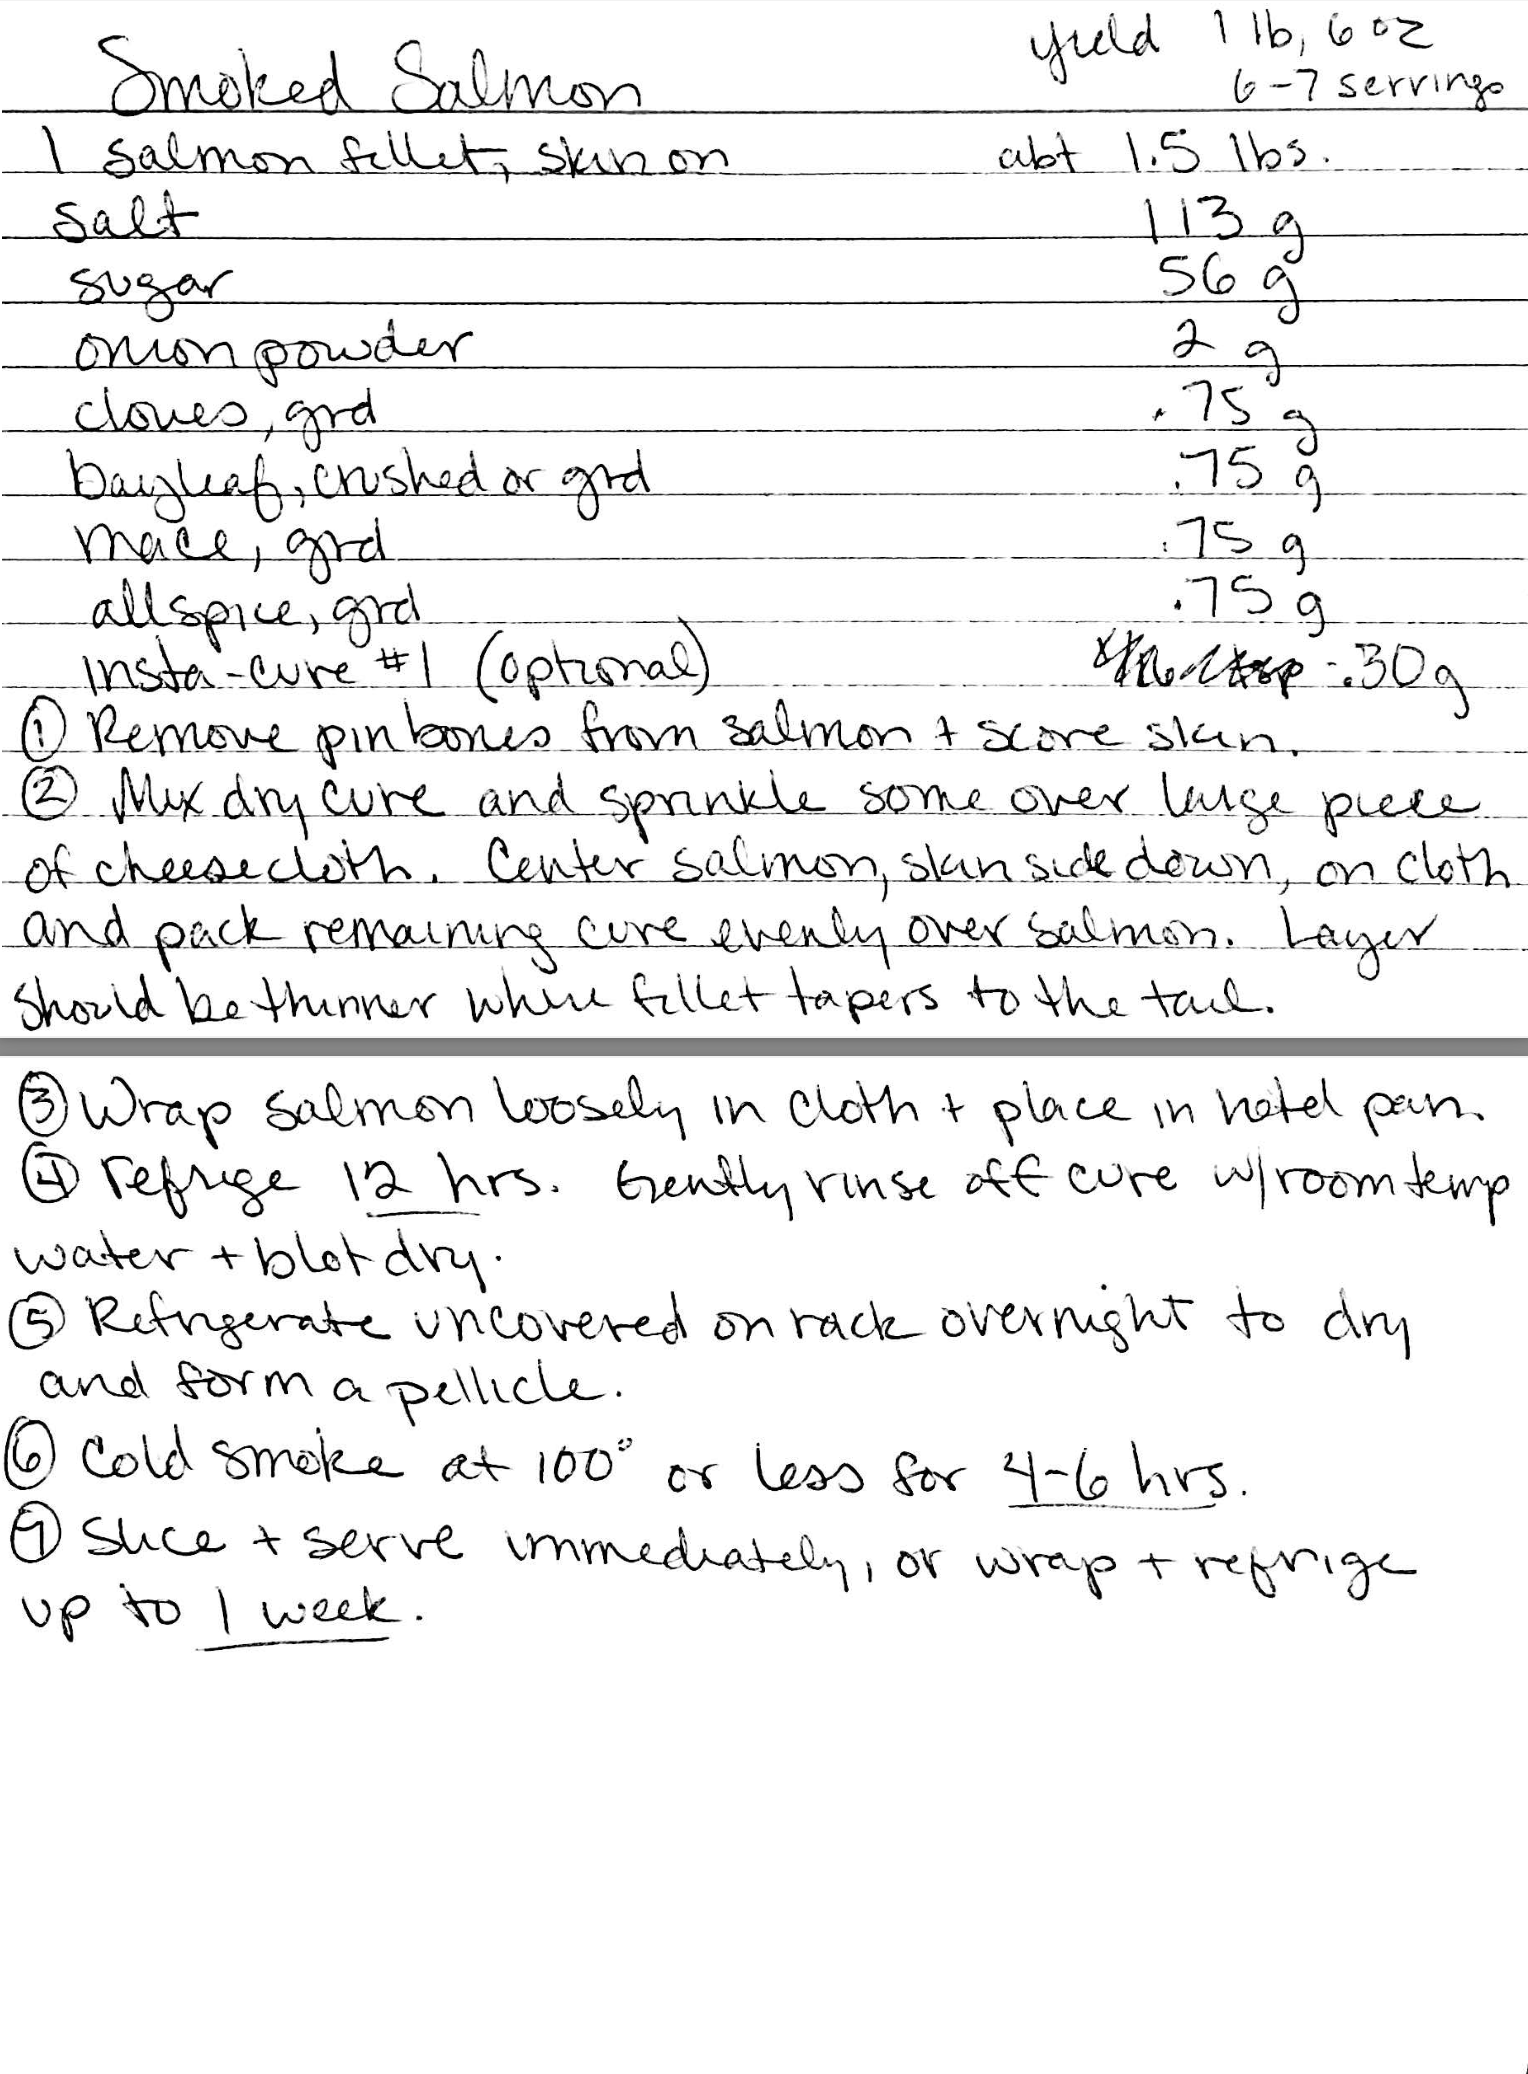 Smoked Salmon
yield 1 lb, 6 oz
6-7 servings
1 salmon fillet, skin on abt 1.5 lbs.
salt 113 g
sugar 56 g
onion powder 2 g
cloves, grd .75 g
bayleaf, crushed or grd .75 g
mace, grd .75 g
allspice, grd .75 g
insta-cure #1 (optional) .30g
① Remove pin bones from salmon + score skin.
② Mix dry cure and sprinkle some over large piece
of cheesecloth. Center salmon, skin side down, on cloth
and pack remaining cure evenly over salmon. Layer
should be thinner where fillet tapers to the tail.
③ Wrap salmon loosely in cloth + place in hotel pan.
④ refrige 12 hrs. Gently rinse off cure w/room temp
water + blot dry.
⑤ Refrigerate uncovered on rack overnight to dry
and form a pellicle.
⑥ Cold smoke at 100° or less for 4-6 hrs.
⑦ Slice + serve immediately, or wrap + refrige
up to 1 week.